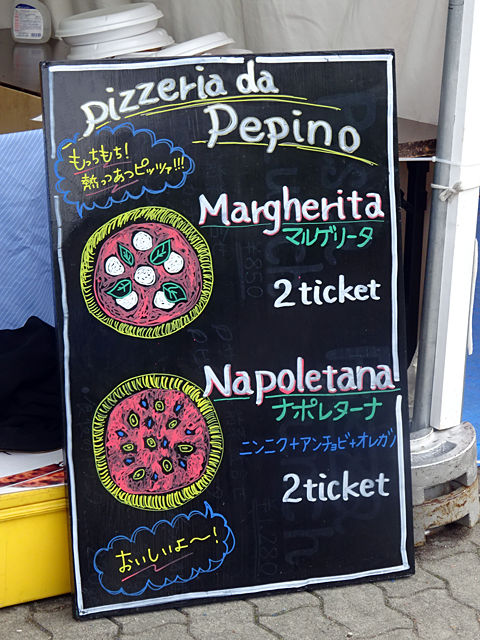 pizzeria da
Pepino
もっちもち!
熱つあつピッツァ!!!
Margherita
マルゲリータ
2 ticket
Napoletana
ナポレターナ
ニンニク+アンチョビ+オレガノ
2 ticket
おいしいよ〜!